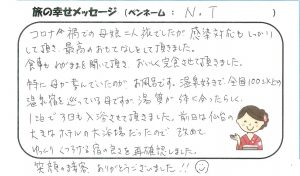 旅の幸せメッセージ（ペンネーム： N.T ）
コロナ禍での母娘二人旅でしたが感染対応もしっかり
して頂き、最高のおもてなしをして頂きました。
食事もわがままを聞いて頂き、おいしく完食させて頂きました。
特に母が喜んでいたのがお風呂です。温泉好きで全国100ヶ以上の
温泉宿を巡っている母ですが、湯質が体に合ったらしく、
1泊で3回も入浴させて頂きました。前日は仙台の
大きなホテルの大浴場だったので改めて
ゆっくりくつろげる宿の良さを再確認しました。
笑顔の接客、ありがとうございました!!